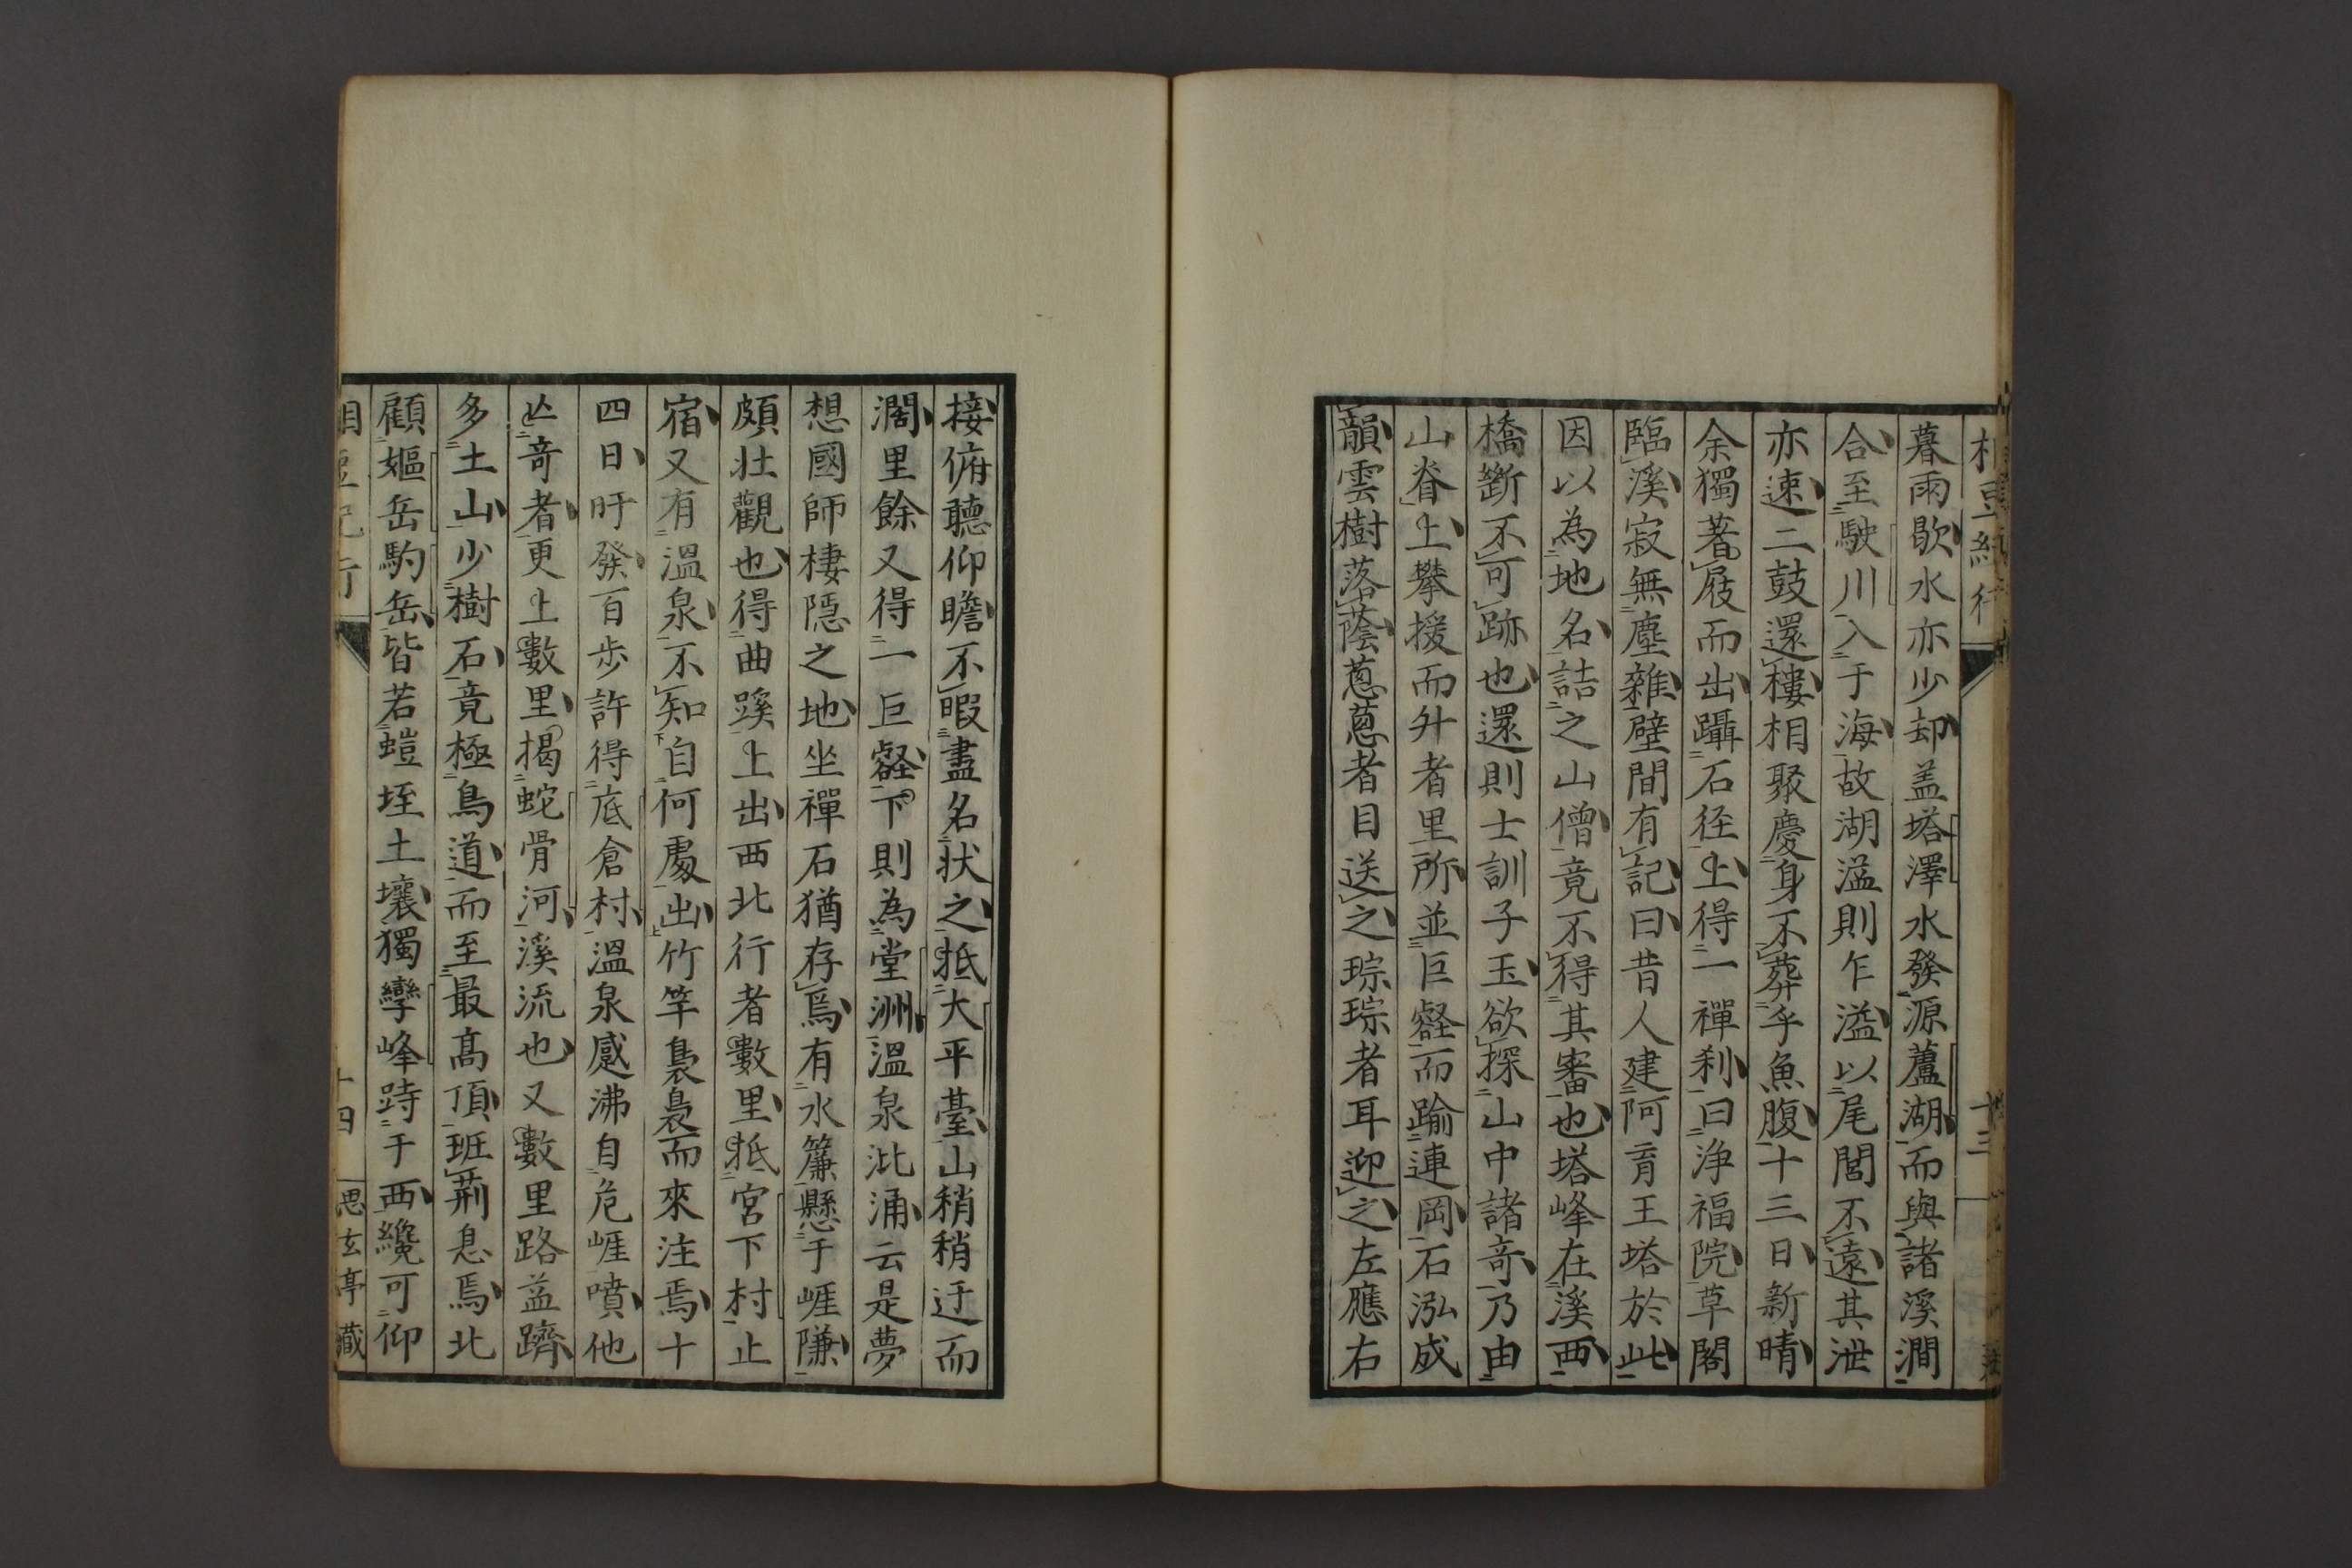 相豆紀行
十三
暮雨歇水亦少却盖塔澤水發源蘆湖而與諸溪澗
合至駛川入于海故湖溢則乍溢以尾閭不遠其泄
亦速二鼓還樓相聚慶身不葬乎魚腹十三日新晴
余獨著屐而出躡石徑上得一禪刹曰浄福院草閣
臨溪寂無塵雜壁間有記曰昔人建阿育王塔於此
因以為地名詰之山僧竟不得其審也塔峰在溪西
橋斷不可跡也還則士訓子玉欲探山中諸奇乃由
山脊上攀援而升者里所並巨壑而踰連岡石泓成
韻雲樹落蔭蔥蔥者目送之琮琮者耳迎之左應右
接俯聽仰瞻不暇盡名狀之抵大平臺山稍稍迂而
濶里餘又得一巨壑下則為堂洲溫泉沘涌云是夢
想國師棲隱之地坐禪石猶存焉有水簾懸于崕隒
頗壯觀也得曲蹊上出西北行者數里抵宮下村止
宿又有溫泉不知自何處出竹竿裊裊而來注焉十
四日旴發百步許得底倉村溫泉感沸自危崕噴他
亡奇者更上數里揭蛇骨河溪流也又數里路益躋
多土山少樹石竟極鳥道而至最高頂班荊息焉北
顧嫗岳駒岳皆若螘垤土壤獨孿峰跱于西纔可仰
相豆紀行
十四
思玄亭藏